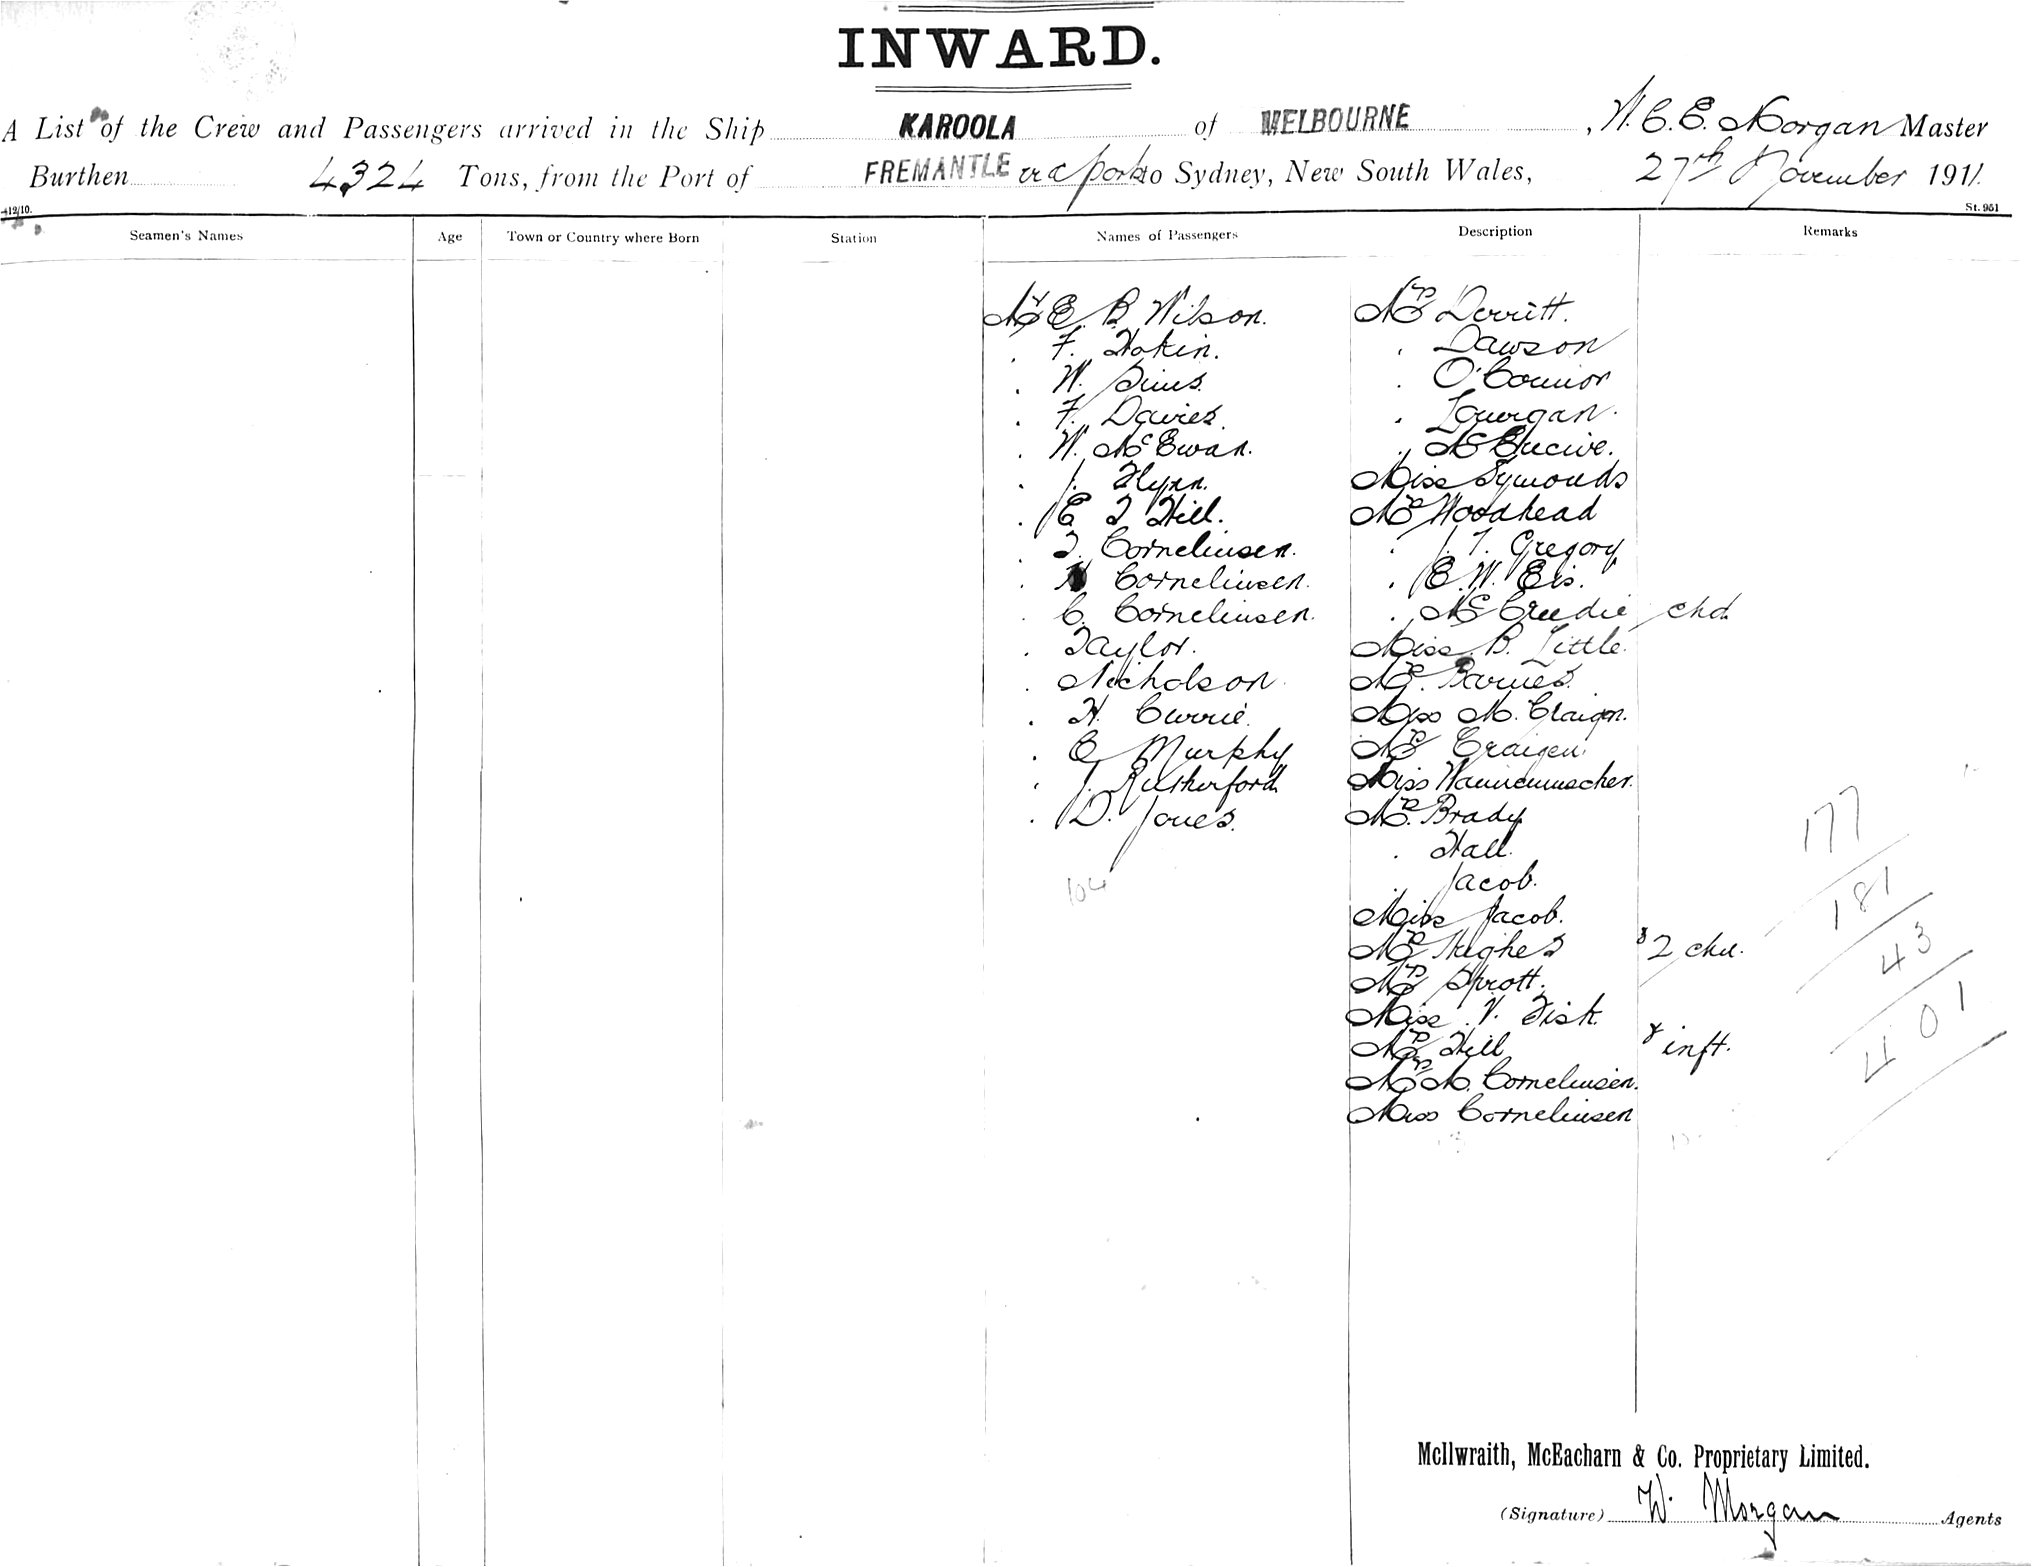 INWARD.
A List of the Crew and Passengers arrived in the Ship KAROOLA of MELBOURNE, W. C. E. Morgan Master
Burthen 4324 Tons, from the Port of FREMANTLE via ports to Sydney, New South Wales, 27th November 1911.
412/10. St. 951
Seamen's Names Age Town or Country where Born Station Names of Passengers Description Remarks
Mr E. B. Wilson.
. F. Hokin.
. W. Sims.
. F. Davies.
. W. McEwan.
. J. Flynn.
. E T Hill.
. T. Corneliusen.
. Corneliusen.
. C. Corneliusen.
. Taylor.
. Nicholson
. H. Currie.
. E Murphy
. J. Rutherford
. D. Jones.
104
Mrs Derritt.
. Dawson
. O'Connor
. Lonergan.
Miss Symonds
Mr Woodhead
. J. T. Gregory
. E. W. Eis.
. McCreedie chd.
Miss B. Little.
Mrs. Barnes.
Miss M. Craigen.
Mrs Craigen.
Miss
Mrs. Brady
. Hall.
. Jacob.
Miss Jacob.
Mrs Hughes & 2 chd.
Mrs Sprott.
Miss V. Fisk.
Mrs Hill & inft.
Mrs M. Corneliusen.
Miss Corneliusen
177
181
43
401
McIlwraith, McEacharn & Co. Proprietary Limited.
(Signature) W. Morgan Agents